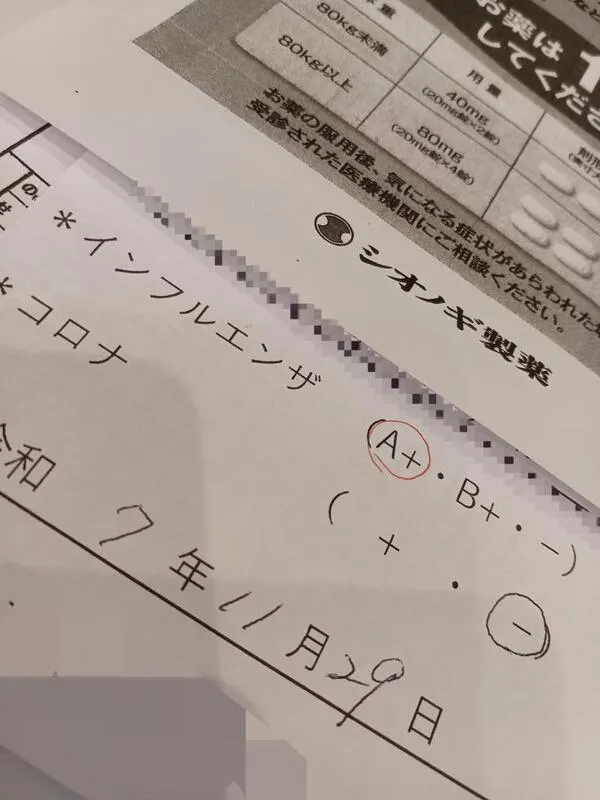 お薬は 1
してくださ
体重 用量
80kg未満 40mg (20mg錠×2錠)
80kg以上 80mg (20mg錠×4錠)
お薬の服用後、気になる症状があらわれた
受診された医療機関にご相談ください。
シオノギ製薬
*インフルエンザ (A+・B+・-)
*コロナ (+・-)
令和 7年11月29日